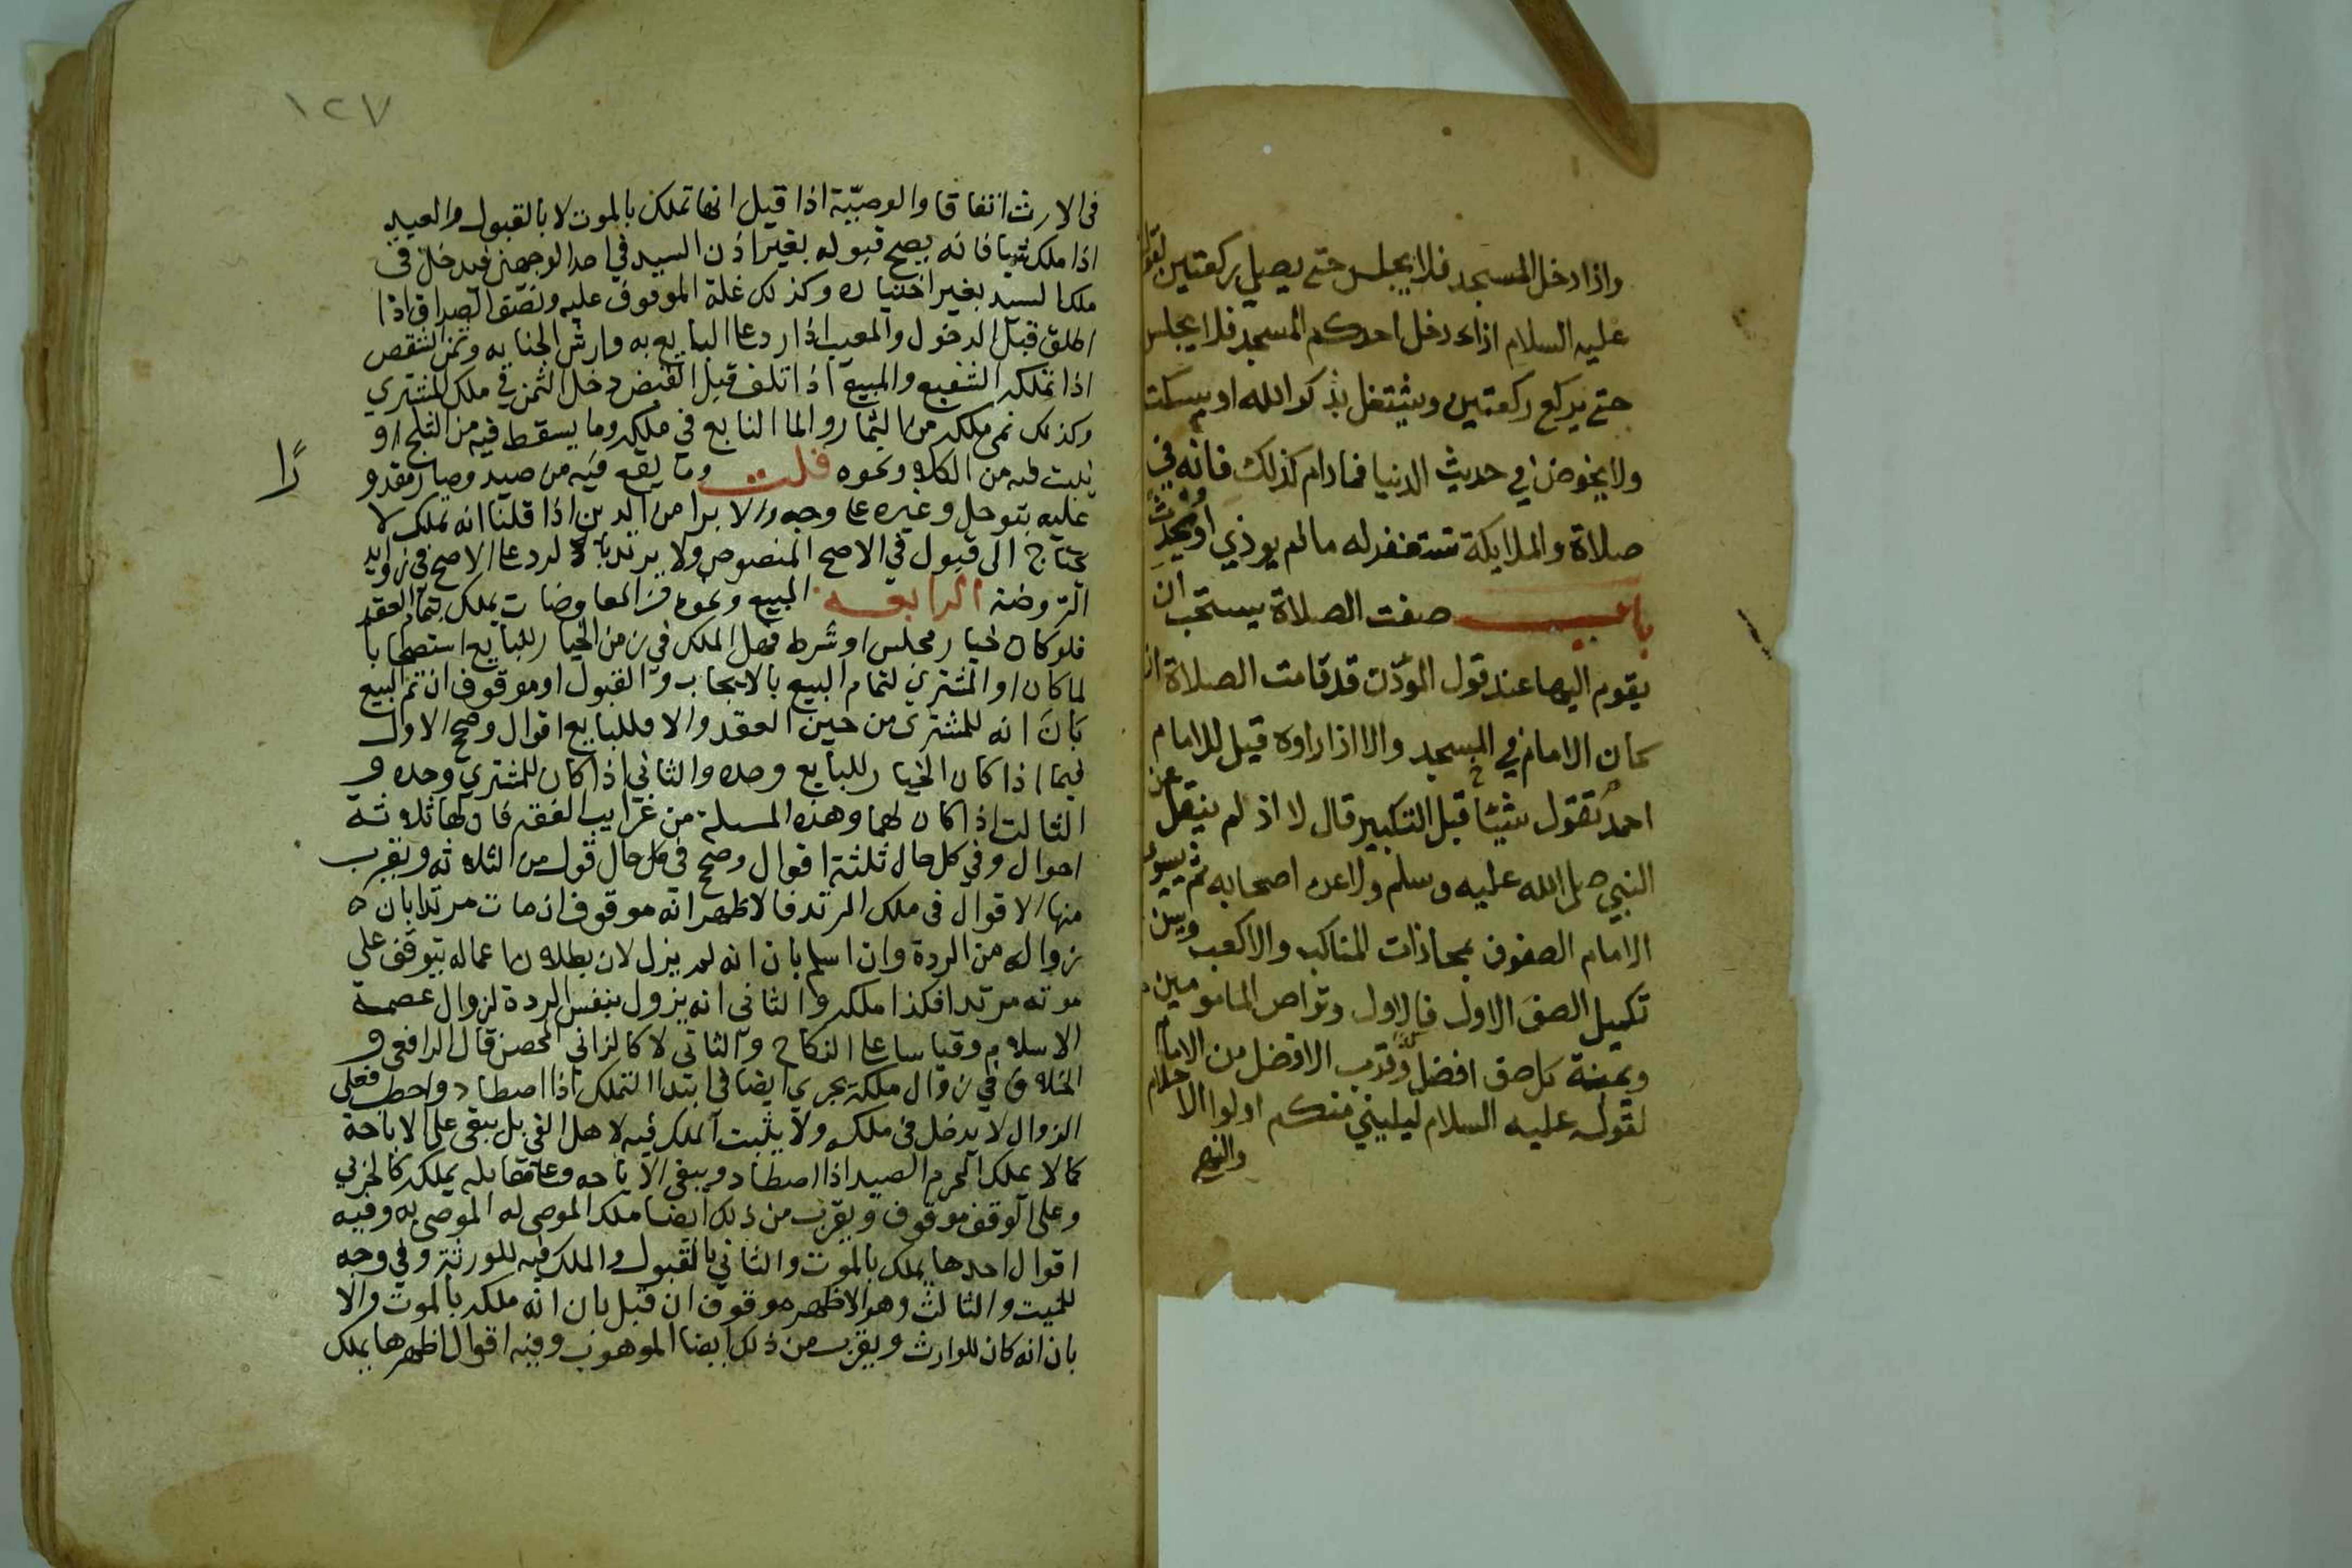 واذا دخل المسجد فلا يجلس حتى يصلي ركعتين لقوله
عليه السلام اذا دخل احدكم المسجد فلا يجلس
حتى يركع ركعتين ويشتغل بذكر الله او يسكت
ولا يخوض في حديث الدنيا فما دام كذلك فانه في
صلاة والملايكة تستغفر له ما لم يوذي او يحدث
باب صفت الصلاة يستحب ان
يقوم اليها عند قول المؤذن قد قامت الصلاة ان
كان الامام في المسجد والا اذا راوه قيل للامام
احمد تقول شيئا قبل التكبير قال لا اذ لم ينقل عن
النبي صلى الله عليه وسلم ولا عن اصحابه ثم يسوي
الامام الصفوف بمحاذات المناكب والاكعب ويسن
تكميل الصف الاول فالاول وتراص المامومين
ويمنة كل صف افضل وقرب الافضل من الامام
لقوله عليه السلام ليليني منكم اولوا الاحلام
والنهى
١٢٧
في الارث اتفاقا والوصية اذا قيل انها تملك بالموت لا بالقبول والعبد
اذا ملك شيا فانه يصح قبوله بغير اذن السيد في احد الوجهين فيدخل في
ملك السيد بغير اختياره وكذلك غلة الموقوف عليه ونصف الصداق اذا
اطلق قبل الدخول والمعيب اذا رد على البايع به وارش الجناية وثمن الشقص
اذا تملكه الشفيع والمبيع اذا تلف قبل القبض دخل الثمن في ملك المشتري
وكذلك نمى ملكه من الثمار والماالنابع في ملكه وما يسقط فيه من الثلج او
ينبت فيه من الكلا ونحوه قلت وما يقع فيه من صيد وصار مقدو
رًا
عليه بتوحل وغيره على وجه والابرا من الدين اذا قلنا انه تمليك لا
يحتاج الى قبول في الاصح المنصوص ولا يرتد بالرد على الاصح في زوايد
الروضة الرابعة المبيع ونحوه من المعاوضات يملك بتمام العقد
فلو كان خيار مجلس او شرط فهل الملك في زمن الخيار للبايع استصحابا
لما كان او المشتري لتمام البيع بالايجاب والقبول او موقوف ان تم البيع
بان انه للمشتري من حين العقد والا فللبايع اقوال وصحح الاول
فيما اذا كان الخيار للبايع وحده والثاني اذا كان للمشتري وحده و
الثالث اذا كان لهما وهذه المسلة من غرايب الفقه فان لها ثلاثة
احوال وفي كل حال ثلثة اقوال وصحح في كل حال قول من الثلاثة ويقرب
منها الاقوال في ملك المرتد فالاظهر انه موقوف ان مات مرتدا بان
زواله من الردة وان اسلم بان انه لم يزل لان بطلان اعماله يتوقف على
موته مرتدا فكذا ملكه والثاني انه يزول بنفس الردة لزوال عصمة
الاسلام وقياسا على النكاح والثاني لا كالزاني المحصن قال الرافعي و
الخلاف في زوال ملكه يجري ايضا في ابتدا التملك اذا اصطاد واحطب فعلى
الزوال لا يدخل في ملكه ولا يثبت الملك فيه لاهل الفي بل يبقى على الاباحة
كما لا يملك المحرم الصيد اذا اصطاد ويبقى الاباحه وعلى مقابله يملكه كالحربي
وعلى الوقف موقوف ويقرب من ذلك ايضا ملك الموصى له الموصى به وفيه
اقوال احدها يملك بالموت والثاني بالقبول والملك فيه للورثة وفي وجه
للميت والثالث وهو الاظهر موقوف ان قبل بان انه ملكه بالموت والا
بان انه كان للوارث ويقرب من ذلك ايضا الموهوب وفيه اقوال اظهرها يملك